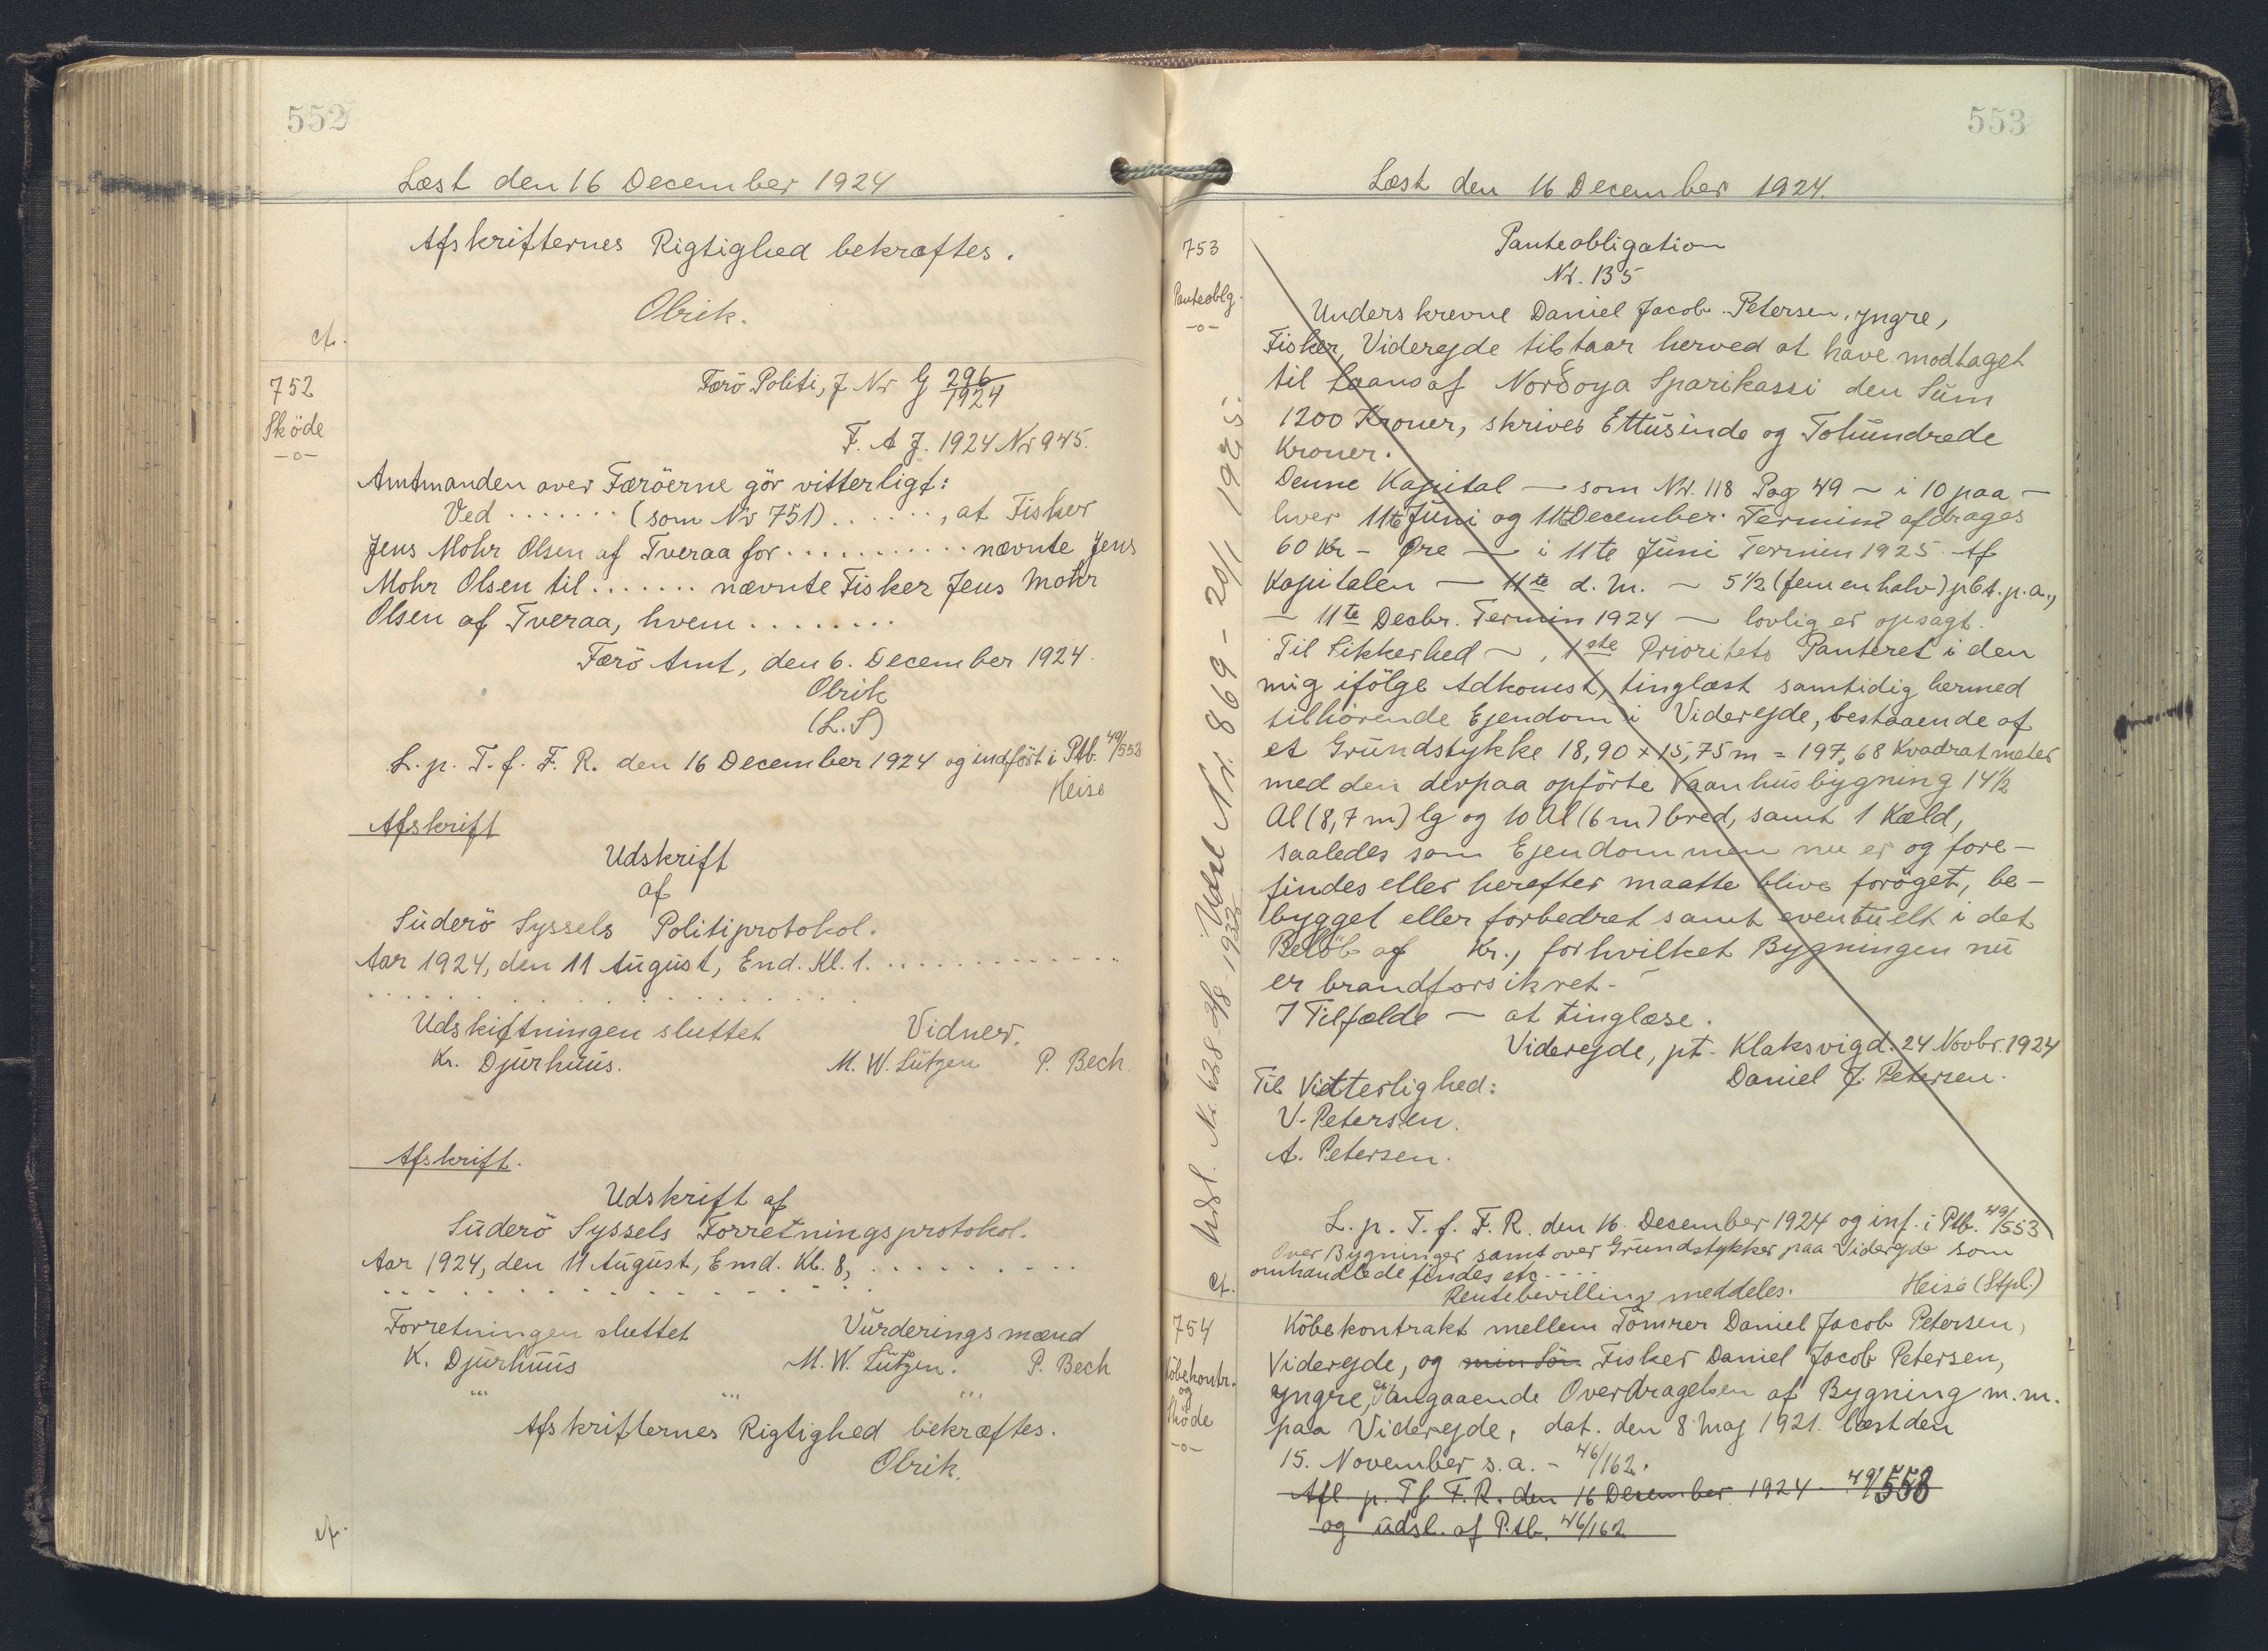 552
Læst den 16 December 1924
Afskrifternes Rigtighed bekræftes.
Olrik.
cf.
752
Sköde
-o-
Færö Politi, J Nr G 296/1924
F. A J. 1924 Nr 945.
Amtmanden over Færöerne gör vitterligt:
Ved ....... (som Nr 751) ......, at Fisker
Jens Mohr Olsen af Tveraa for ........... nævnte Jens
Mohr Olsen til ....... nævnte Fisker Jens Mohr
Olsen af Tveraa, hvem ........
Færö Amt, den 6. December 1924.
Olrik
(L.S)
L. p. T. f. F. R. den 16 December 1924 og indfört i Ptb. 49/552
Heise
Afskrift
Udskrift
af
Süderö Syssels Politiprotokol.
Aar 1924, den 11 August, Emd. Kl. 1. .............
....................
Udskiftningen sluttet Vidner.
Kr. Djurhuus. M. W. Lützen P. Bech.
Afskrift.
Udskrift af
Süderö Syssels Forretningsprotokol.
Aar 1924, den 11 August, Emd. Kl. 8, ..........
..................
Forretningen sluttet Vurderingsmænd
K. Djurhuus M. W. Lützen. P. Bech
''' ''' '''
Afskrifternes Rigtighed bekræftes.
Olrik.
cf.
553
Læst den 16 December 1924.
753
Panteoblg.
-o-
Panteobligation
Nr. 135
Underskrevne Daniel Jacob Petersen, yngre,
Fisker, Viderejde tilstaar herved at have modtaget
til Laans af Norðoya Sparikassi den Sum
1200 Kroner, skrives Ettusinde og Tohundrede
Kroner.
Denne Kapital — som Nr. 118 Pag 49 — i 10 paa —
hver 11te Juni og 11te December Termin afdrages
60 Kr - Øre — i 11te Juni Termin 1925 Af
Kapitalen — 11te d. M. — 5 1/2 (fem en halv) pCt. p. a.,
— 11te Decbr. Termin 1924 — lovlig er opsagt.
Til Sikkerhed —, 1ste Prioritets Panteret i den
mig ifölge Adkomst, tinglæst samtidig hermed
tilhörende Ejendom i Viderejde, bestaaende af
et Grundstykke 18,90 x 15,75 m = 197,68 Kvadratmeter
med den derpaa opförte Vaanhusbygning 14 1/2
Al (8,7 m) lg og 10 Al (6 m) bred, samt 1 Kæld,
saaledes som Ejendommen nu er og fore-
findes eller herefter maatte blive foröget, be-
bygget eller forbedret samt eventuelt i det
Belöb af Kr., for hvilket Bygningen nu
er brandforsikret-
I Tilfælde — at tinglæse.
Viderejde, pt. Klaksvig d. 24 Novbr. 1924
Daniel J. Petersen.
Til Vitterlighed:
V. Petersen.
A. Petersen.
L. p. T. f. F. R. den 16. December 1924 og inf. i Ptb. 49/553
Over Bygninger samt over Grundstykker paa Viderejde som
omhandlede findes etc....
Rentebevilling meddeles. Heise (Stpl.)
Udsl Nr. 869 - 20/1 1925.
Udsl. Nr. 628
cf.
754
Köbekontr.
og
Sköde
-o-
Köbekontrakt mellem Tömrer Daniel Jacob Petersen,
Viderejde, og min Sön Fisker Daniel Jacob Petersen,
yngre, angaaende Overdragelsen af Bygning m.m.
paa Viderejde, dat. den 8 Maj 1921. læst den
15. November s. a. - 46/162.
Afl. p. T f F. R. den 16 December 1924 - 49/553
og udsl. af Ptb. 46/162